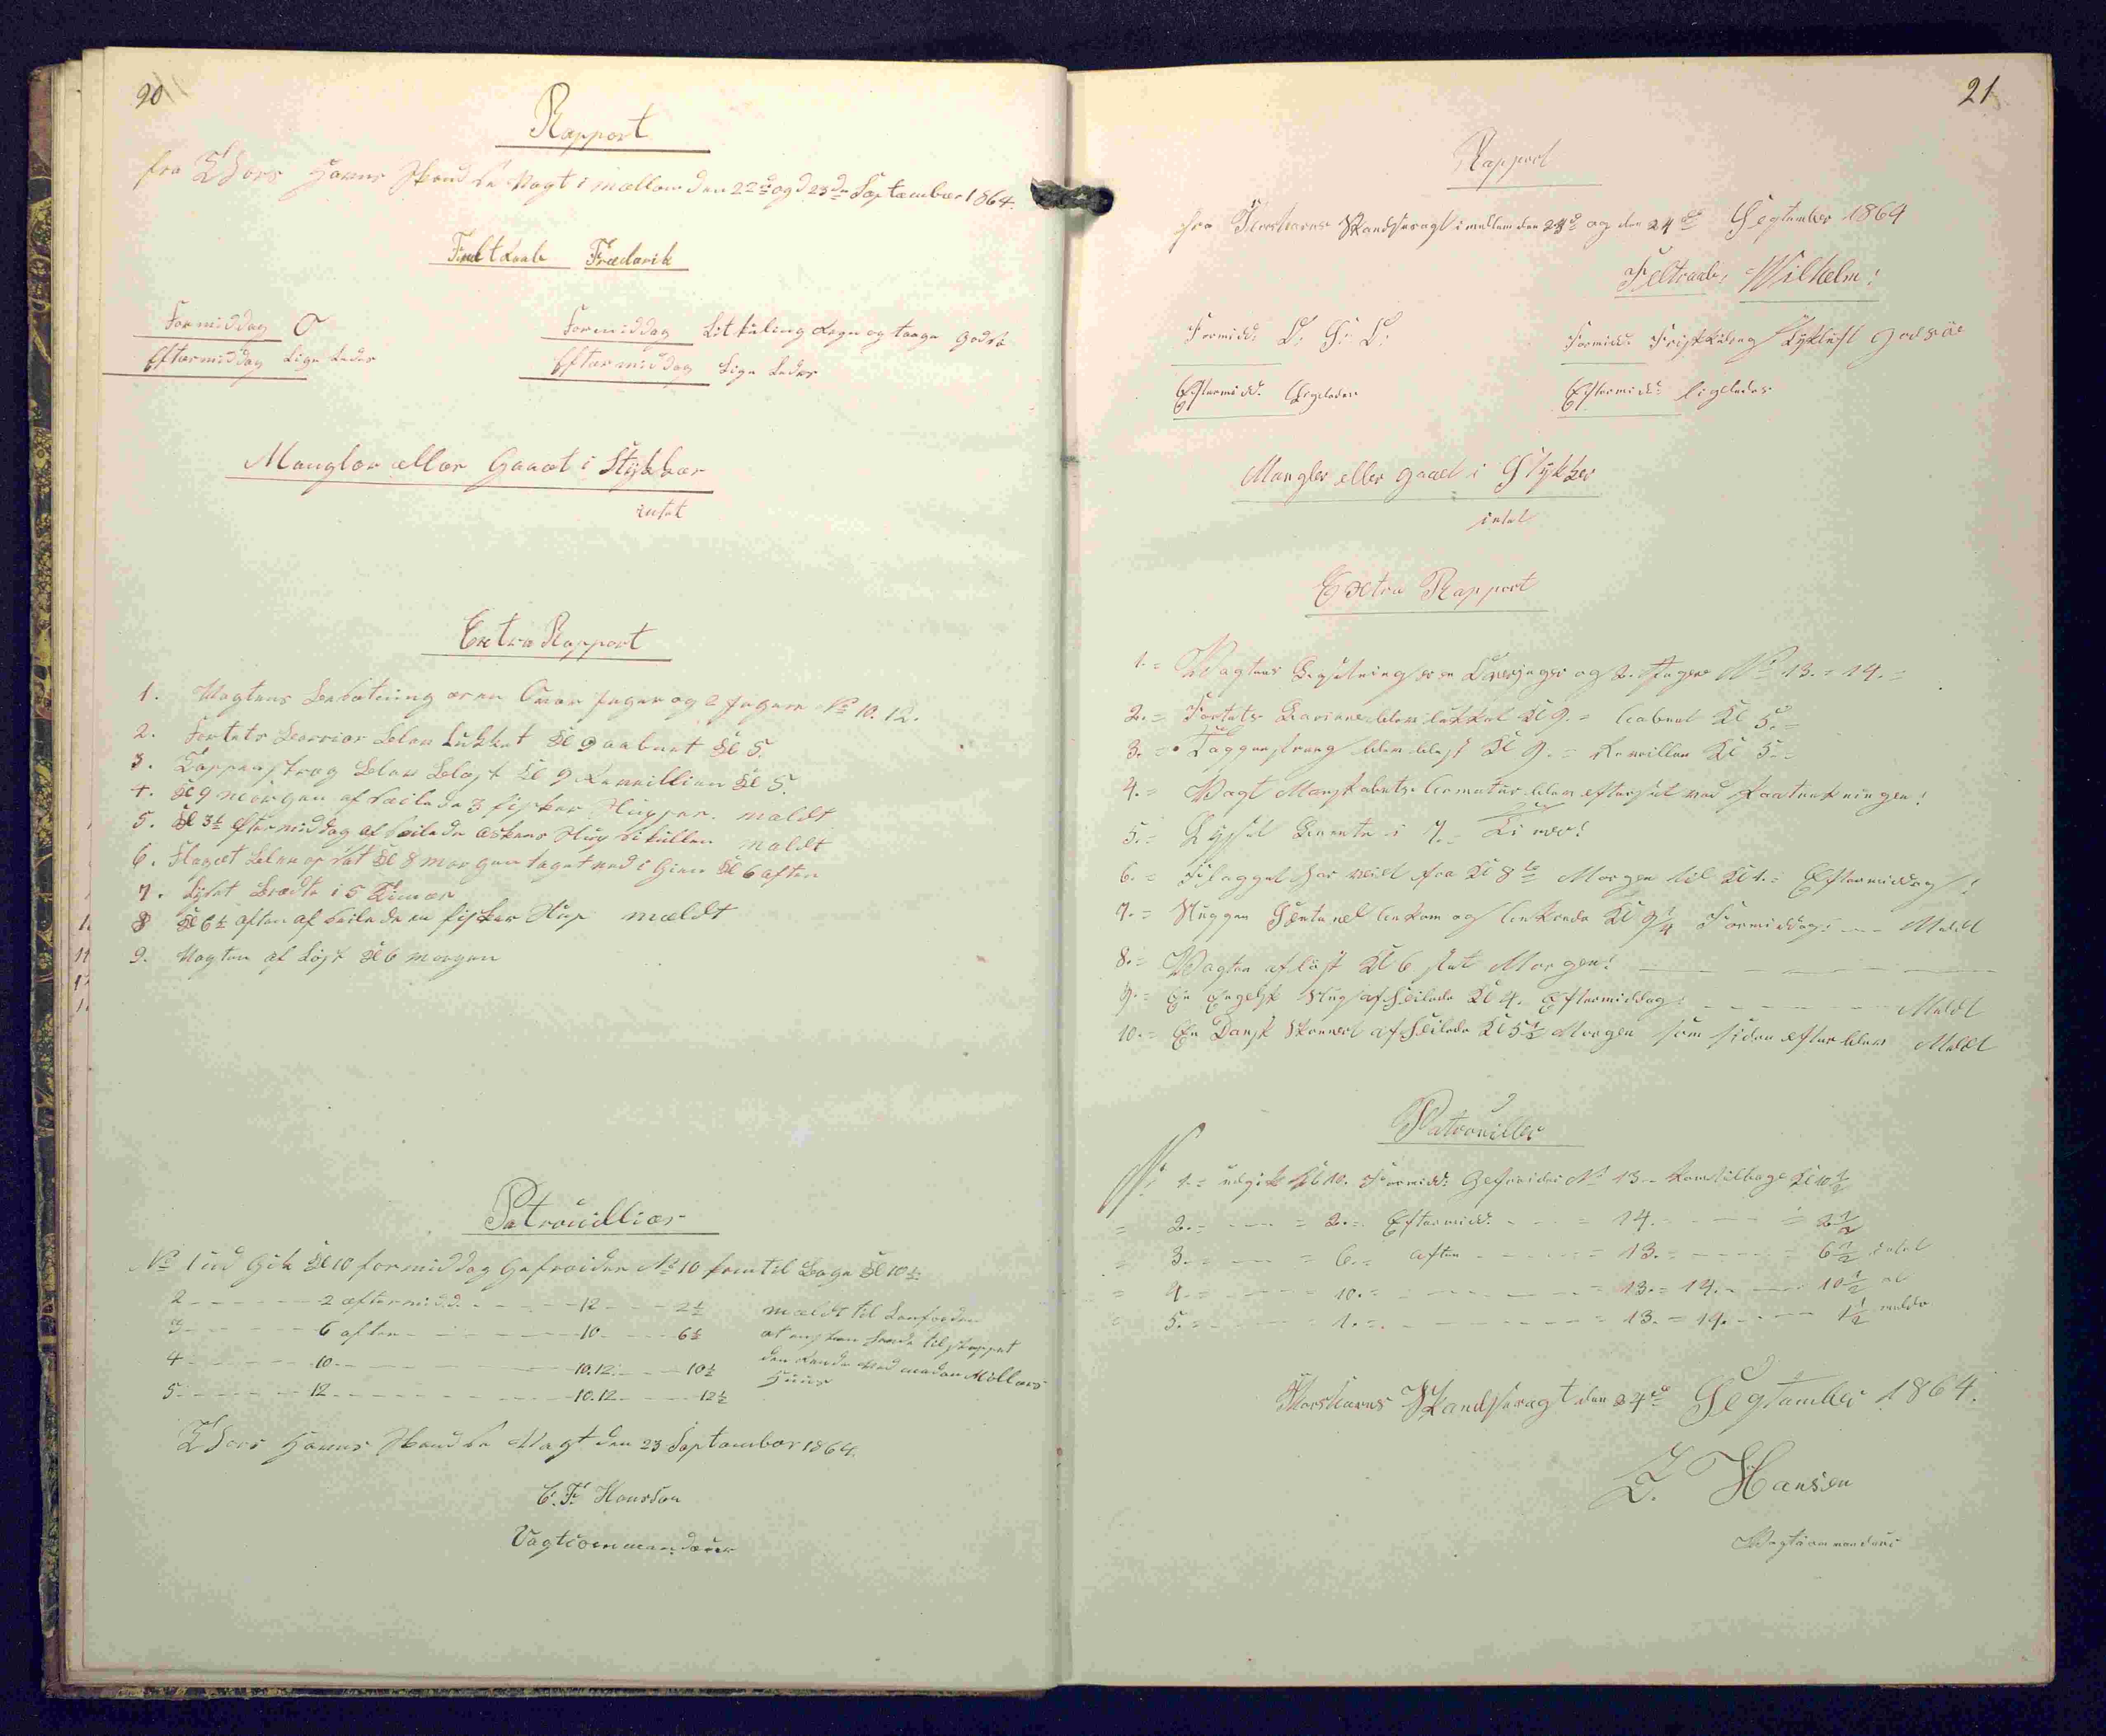 20
Rapport
fra Thors Havns Skandse Vagt i mællom den 22de og d 23de Septæmber 1864.
Feltraab Frædærik
Formiddag O Formiddag Lit kuling Regn og taage god sö
Eftærmiddag Lige Ledes Eftærmiddag Lige Ledes
Mangler ællær Gaaæt i Stykkær
intet
Extra Rapport
1. Vagtens Besætning ær en Övær Jæger og 2 Jægere No 10. 12.
2. Fortets Barriær blev Lukket Kl 9 aabnet Kl 5.
3. Tappenstræg blev blæst Kl 9 Revæillien Kl 5.
4. Kl 9 morgen af seilede 3 fisker Slupper. mældt
5. Kl 3½ Eftermiddag af seilede Slup mældt
6. Flaget blev op sat Kl 8 morgen taget ned i Gien Kl 6 aften
7. Lyset Brædte i 5 Timær
8 Kl 6½ aften af seilede en fisker Slup mældt
9. Vagten af Löst Kl 6 morgen
Patrouilliær
No 1 ud Gik Kl 10 formiddag Gefreider No 10 kom til Bage Kl 10½
2 - - - 2 æftermidd. - - - 12 - - - 2½ mældt til
3 - - - 6 aften - - - 10 - - - 6½
4 - - - 10 - - - 10.12. - - - 10½
5 - - - 12 - - - 10.12 - - - 12½
Thors Havns Skandse Vagt den 23 Septæmber 1864.
C. F. Hansson
Vagtcommandeur
21
Rapport
fra Thorshavns Skandsevagt imellem den 23de og den 24de September 1864
Feltraab, Wilhelm!
Formidd. Formidd. Frisk Kuling Tyk luft god söe
Eftermidd. Ligeledes Eftermidd. ligeledes
Mangler eller gaaet i Stykker
intet
Extra Rapport
1. = Vagtens Besætning er en Överjæger og 2. Jægere No 13. = 14. =
2. = Fortets Bariere blev lukket Kl 9. = Aabnet Kl 5. =
3. = Tappenstræng blev blæst Kl 9. = Reveillen Kl 5. =
4. = Vagt Mandskabets Armatur blev efterset ved
5. = Lyset brænte i 7. Timer!
6. = Flagget har veiet fra Kl 8te Morgen til Kl 1. = Eftermiddag!
7. = Sluppen Ankom og Ankrede Kl 9¼ Formiddag! - - Meldt
8. = Vagten aflöst Kl 6 slet Morgen!
9. = En Engelsk Slup afseilede Kl 4. Eftermiddag. - - - Meldt
10. = En Dansk Skonnert afseilede Kl 5½ Morgen som siden efter blev Meldt
Patrouiller
No 1. = udgik Kl 10. Formidd. Gefreider No 13 - kom tilbage Kl 10½
= 2. = - - = 2. = Eftermidd. - - - = 14. - - - = 2½
= 3. = - - = 6. = aften - - - = 13. = - - - 6½ intet
= 4. = - - = 10. = - - - = 13. = 14. - - - 10½ at
= 5. = - - = 1. = - - - = 13. = 14. - - - 1½ melde
Thorshavns Skandsevagt den 24de September 1864.
Z. Hansen
Vagtcommandeur